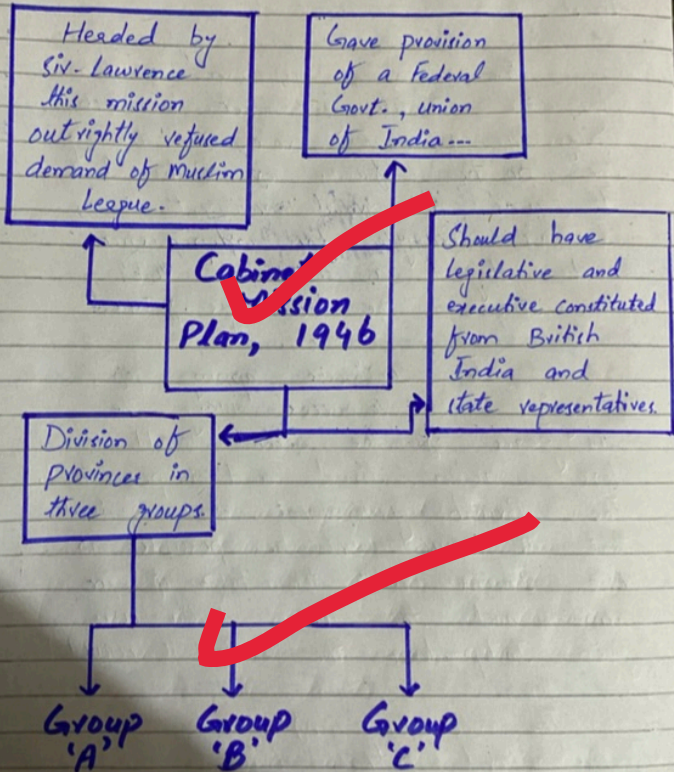 Headed by
Sir. Lawrence
this mission
outrightly refused
demand of Muslim
League.
Gave provision
of a Federal
Govt., union
of India...
Cabinet
Mission
Plan, 1946
Should have
legislative and
executive constituted
from British
India and
state representatives.
Division of
Provinces in
three groups.
Group
'A'
Group
'B'
Group
'C'